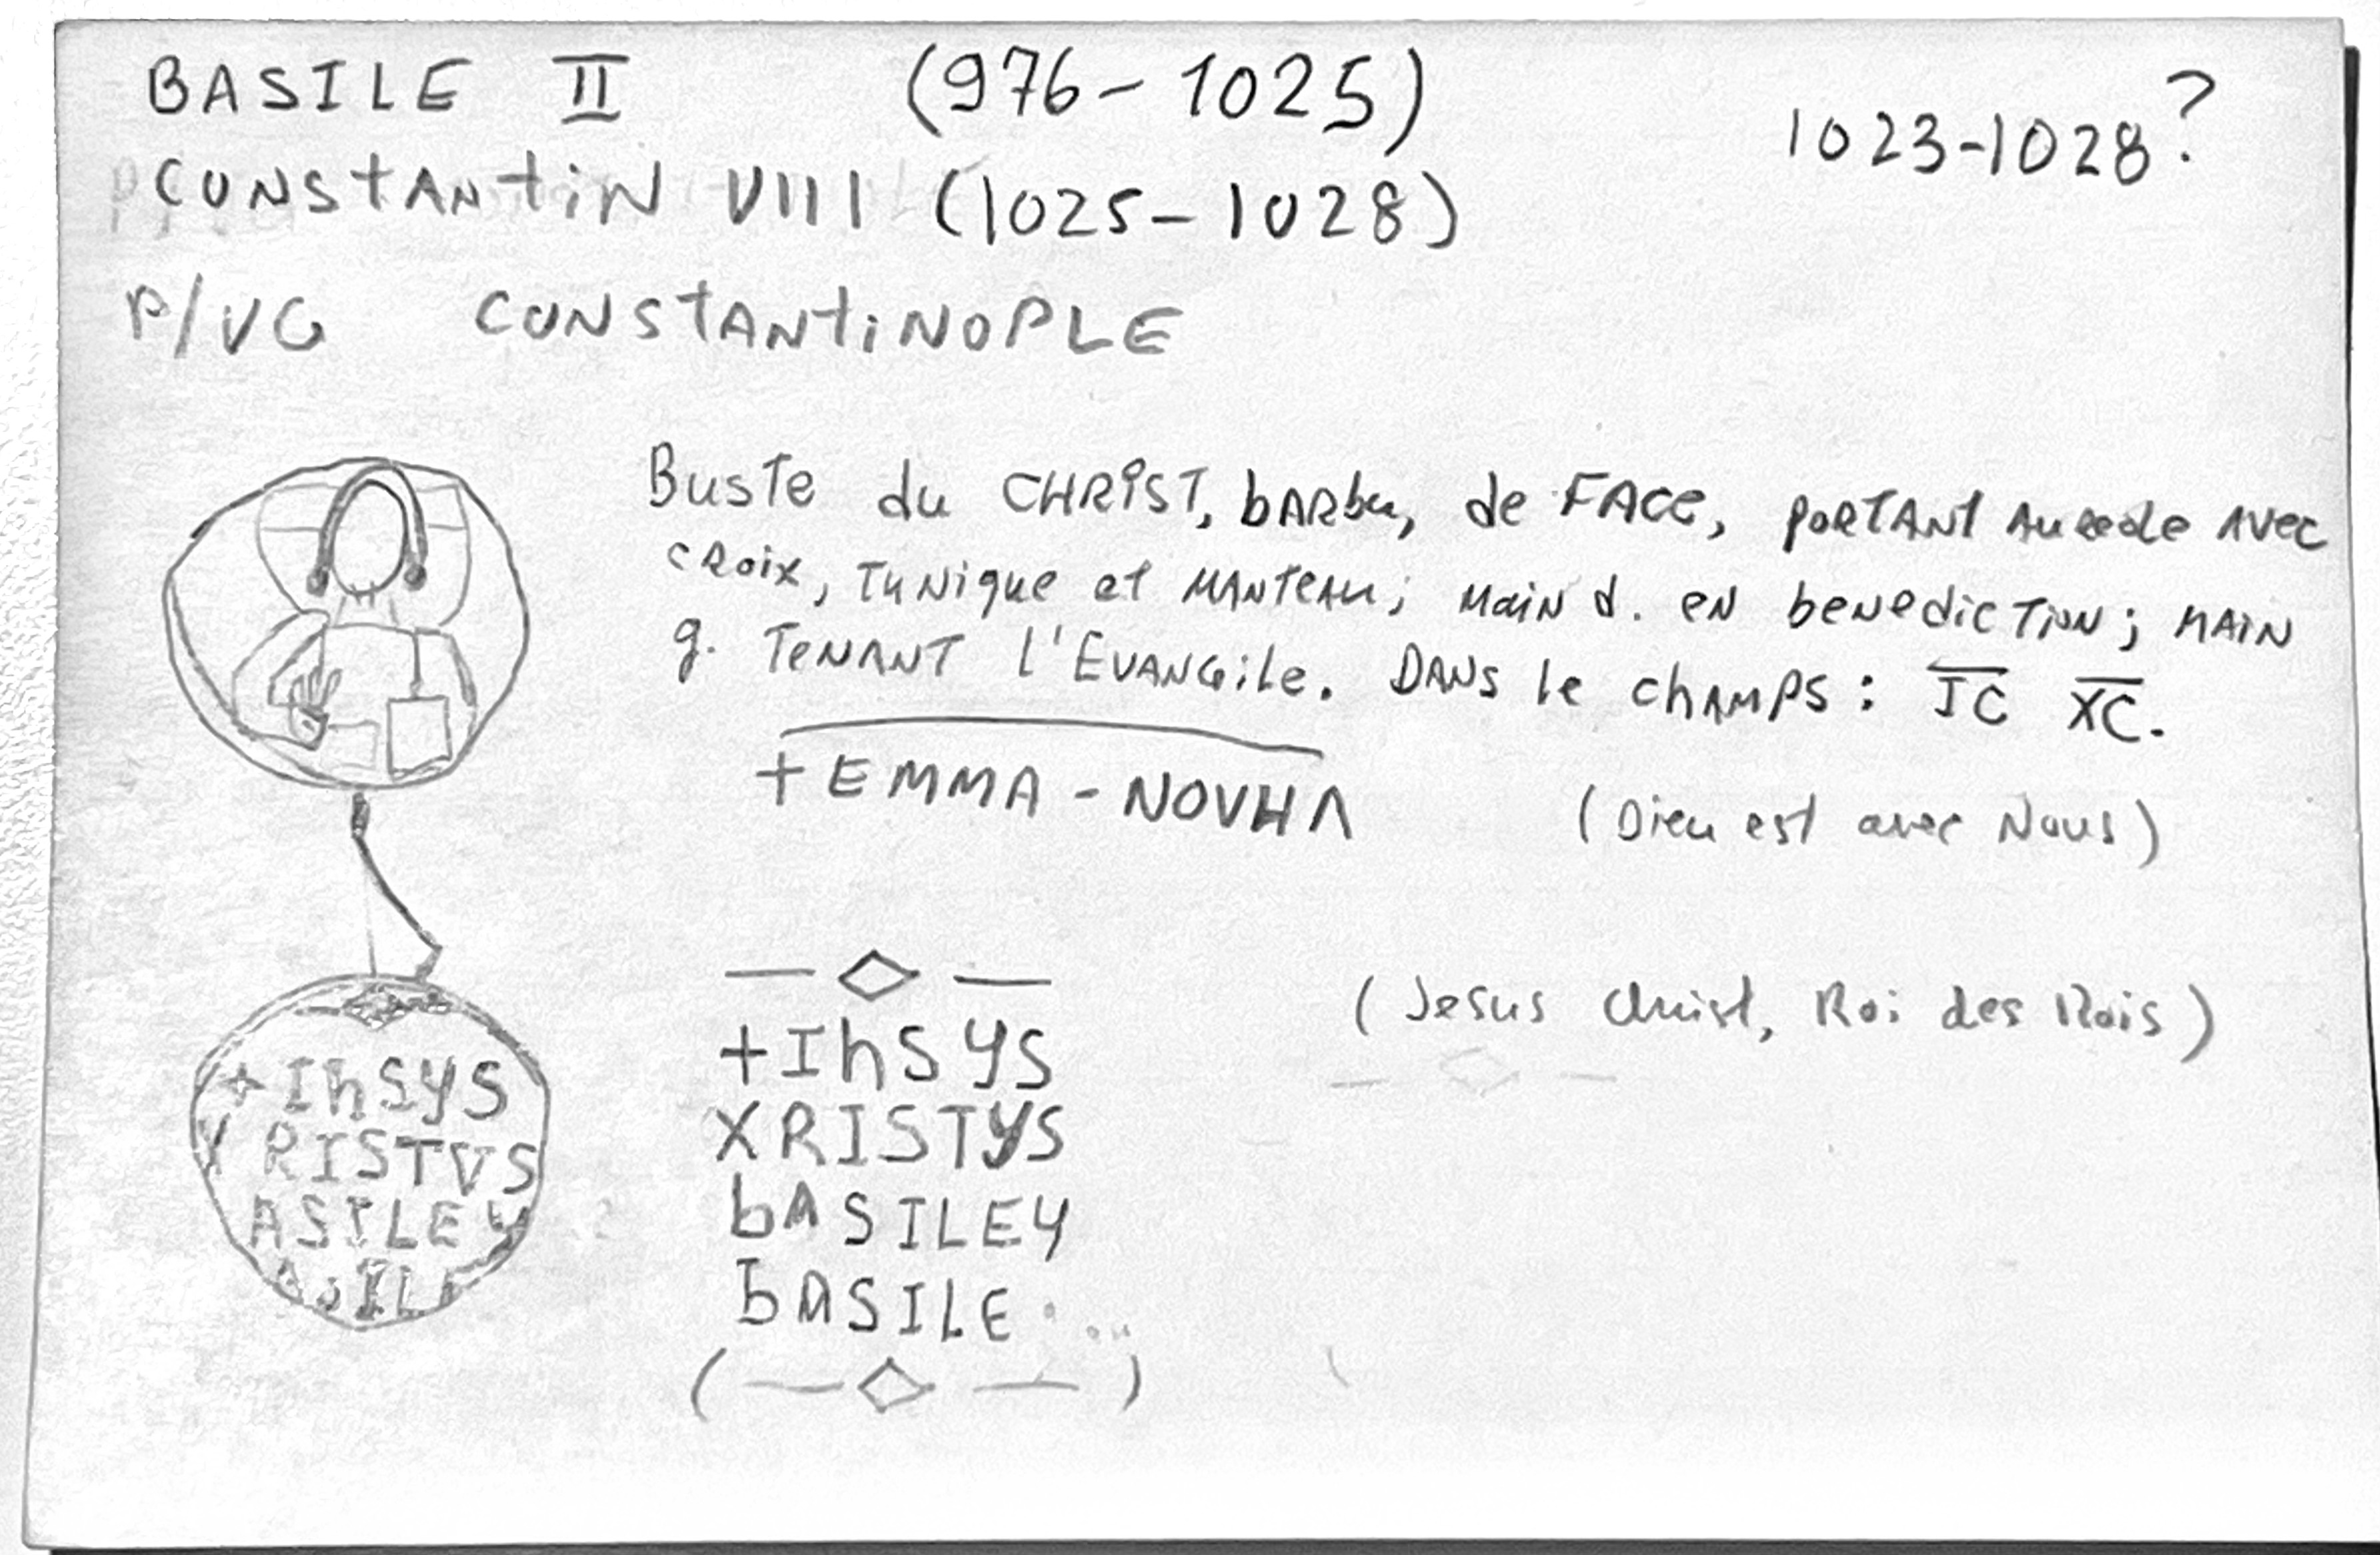 BASILE II (976-1025)
1023-1028?
CONSTANTIN VIII (1025-1028)
P/VG CONSTANTINOPLE
Buste du CHRIST, bARbu, de FACE, PORTANT Aureole AVec
CRoix, TuNique et MANTEAu; MaiN d. eN beNedicTioN; MAIN
g. TeNANT l'EVANGile. DANS le chAMPS: IC XC.
+EMMA-NOVHΛ
(Dieu est avec Nous)
+IhSYS
XRISTVS
ASILEY
ASIL
+IhSYS
XRISTYS
bASILEY
bASILE
(Jesus Christ, Roi des Rois)